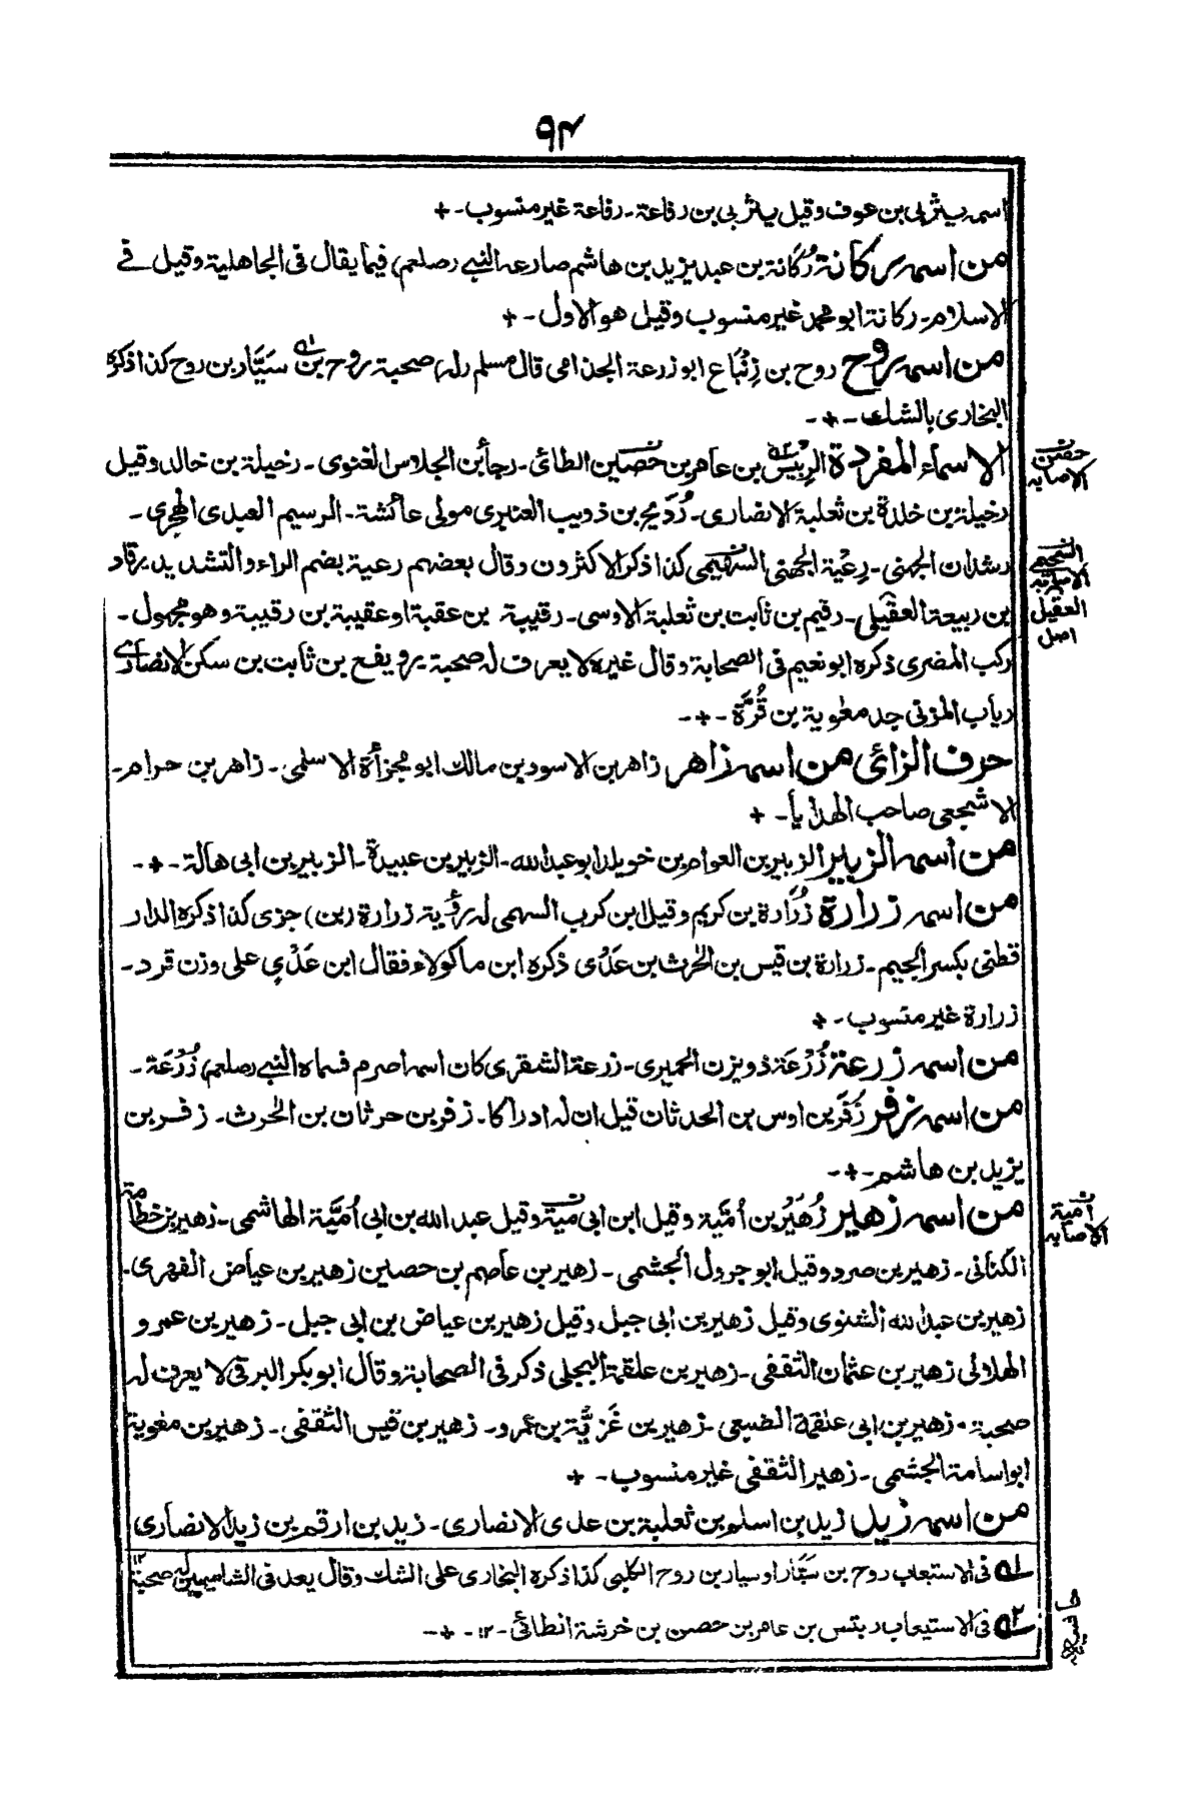 ٩٤
اسمہ یثربی بن عوف وقیل یثربی بن رفاعة۔ رفاعة غیر منسوب۔+
من اسمہ رکانة رُکَانة بن عبد یزید بن هاشم صارعہ النبے (صلعم) فیما یقال فی الجاهلیة وقیل فے
الاسلام۔ رکانة ابو محمد غیر منسوب وقیل هو الاول۔+
من اسمہ روح روح بن زِنْبَاع ابو زرعة الجذامی قال مسلم (لہ) صحبة روح بن سَیَّار بن روح کذا ذکرہ
البخاری بالشك۔+۔
الاسماء المفردة الرِبیس بن عامر بن حصین الطائی۔ رجأ بن الجلاس الغنوی۔ رخیلة بن خالد وقیل
رخیلة بن خلدة بن ثعلبة الانصاری۔ رُدَیْح بن ذویب العنبری مولی عائشة۔ الرسیم العبدی الهجری۔
رشدان الجهنی۔ رِعْیة الجهنی السهیمی کذا ذکر الاکثرون وقال بعضهم رعیة بضم الراء والتشدید رقاد
بن ربیعة العقیلی۔ رقیم بن ثابت بن ثعلبة الاوسی۔ رقیبة بن عقبة او عقیبة بن رقیبة وهو مجهول۔
رکب المضری ذکرہ ابو نعیم فی الصحابة وقال غیرہ لا یعرف لہ صحبة رویفع بن ثابت بن سکن الانصاری
ریأب المزنی جد معٰویة بن قُرَّة۔+۔
حرف الزائ من اسمہ زاهر زاهر بن الاسود بن مالك ابو مجزأة الاسلمی۔ زاهر بن حرام۔
الاشجعی صاحب الهدایأ۔+
من اسمہ الزبیر الزبیر بن العوام بن خویلد ابو عبد اللہ۔ الزبیر بن عبیدة۔ الزبیر بن ابی هالة۔+۔
من اسمہ زرارة زُرَارة بن کریم وقیل ابن کرب السهمی لہ رؤیة زرارة (بن) جزی کذا ذکرہ الدار
قطنی بکسر الجیم۔ زرارة بن قیس بن الحٰرث بن عَدْی ذکرہ ابن ماکولاء فقال ابن عَدْیٍ علی وزن قرد۔
زرارة غیر منسوب۔+
من اسمہ زرعة زُرْعَة ذویزن الحمیری۔ زرعة الشقری کان اسمہ اصرم فسماہ النبے (صلعم) زُرْعَة۔
من اسمہ زفر زُفَر بن اوس بن الحدثان قیل ان لہ ادراکا۔ زفر بن حرثان بن الحٰرث۔ زفر بن
یزید بن هاشم۔+۔
من اسمہ زهیر زُهَیْر بن أمَیَّة وقیل ابن ابی میة وقیل عبد اللہ بن ابی أمَیَّة الهاشمی۔ زهیر بن خطامة
الکنانی۔ زهیر بن صرد وقیل ابو جرول الجشمی۔ زهیر بن عاصم بن حصین زهیر بن عیاض الفهری۔
زهیر بن عبد اللہ الشنوی وقیل زهیر بن ابی جبل وقیل زهیر بن عیاض بن ابی جبل۔ زهیر بن عمرو
الهلالی زهیر بن عثمان الثقفی۔ زهیر بن علقمة البجلی ذکر فی الصحابة وقال ابو بکر البرقی لا یعرف لہ
صحبة۔ زهیر بن ابی علقمة الضبعی۔ زهیر بن غَزِیَّة بن عمرو۔ زهیر بن قیس الثقفی۔ زهیر بن معٰویة
ابو اسامة الجشمی۔ زهیر الثقفی غیر منسوب۔+
من اسمہ زید زید بن اسلم بن ثعلبة بن عدی الانصاری۔ زید بن ارقم بن زید الانصاری
لہ١ فی الاستیعاب روح بن سَیَّار او سیار بن روح الکلبی کذا ذکرہ البخاری علی الشك وقال یعد فی الشامیین لہ صحبة ١٢
لہ٢ فی الاستیعاب ربتس بن عامر بن حصن بن خرشة الطائی۔١٢۔+۔
حصن
الاصابہ
السحیمی
الاصابہ
العقیل
اصل
أمیة
الاصابہ